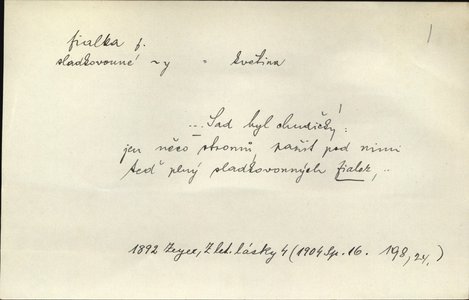 fialka f.
sladkovonné ~y = květina
... Sad byl chudičký:
jen něco stromů, zažit pod nimi
teď plný sladkovonných fialek, ..
1892 Zeyer, Z let. lásky 4 (1904 Sp. 16. 198, 24.)